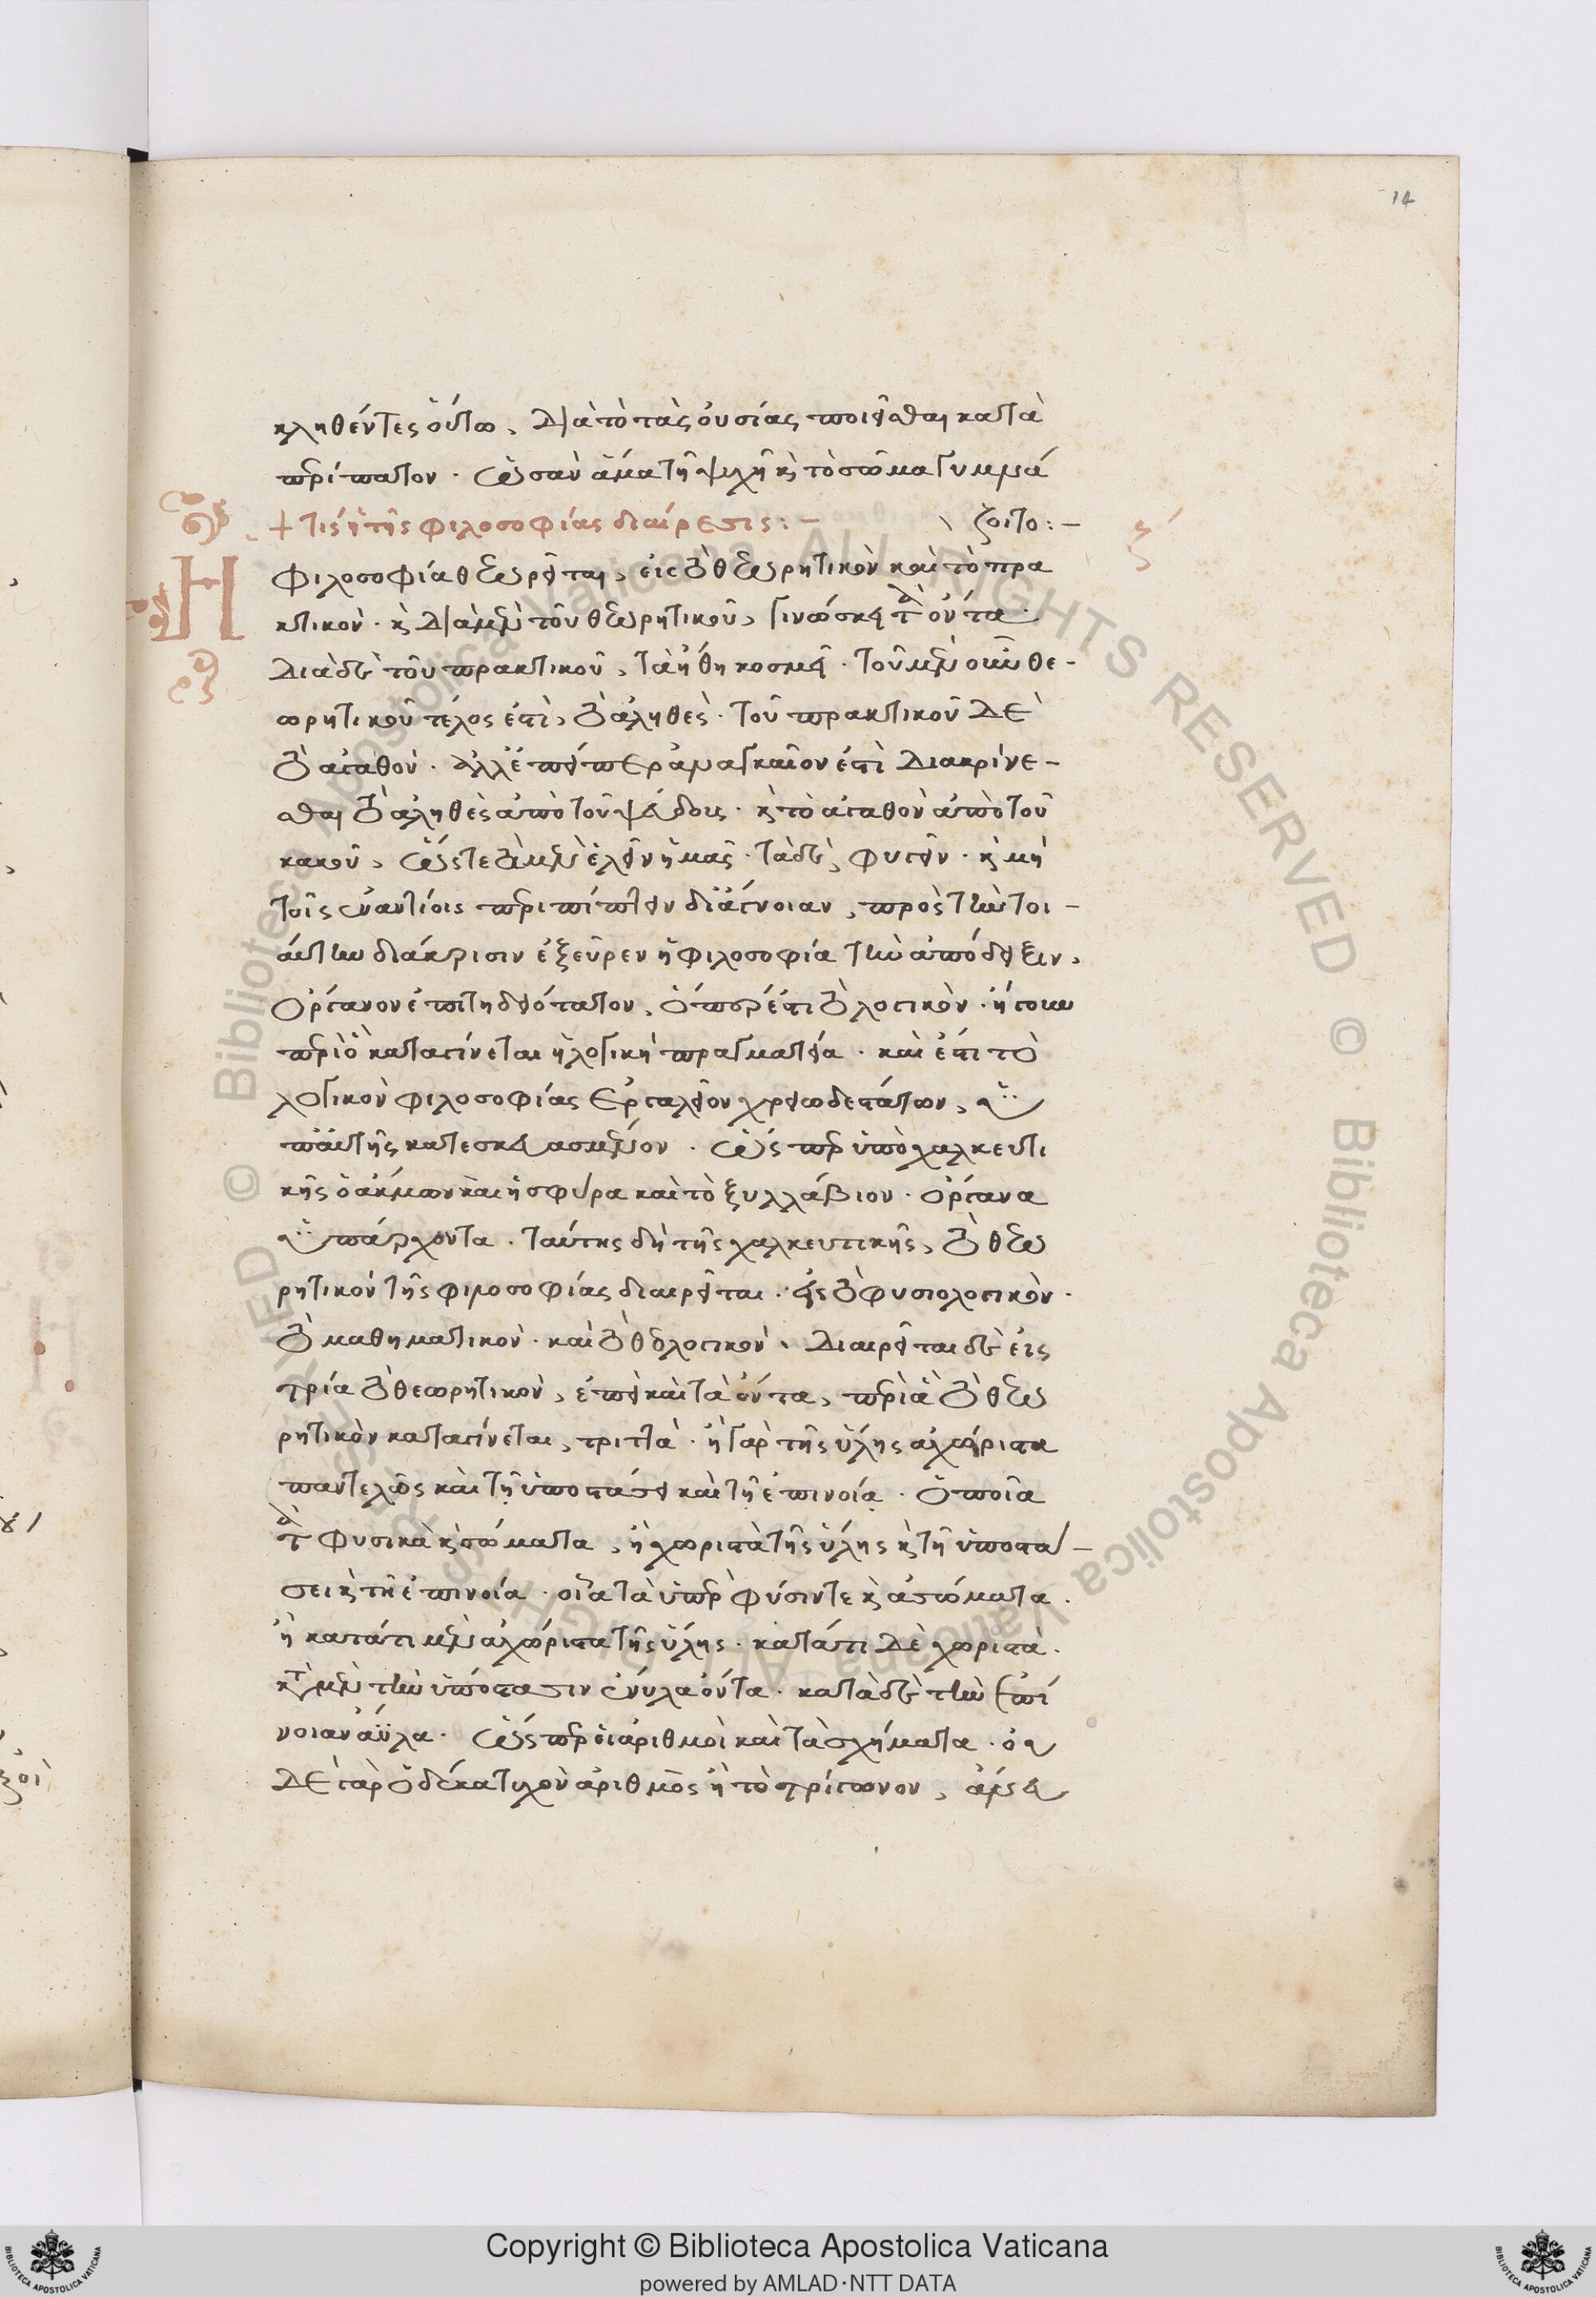 14
κληθέντες οὕτω, διὰ τὸ τὰς οὐσίας ποιεῖσθαι κατὰ
περίπατον. ὡς ἂν ἅμα τῇ ψυχῇ κ τὸ σῶμα γυμνά
+ τίς ἡ τῆς φιλοσοφίας διαίρεσις:– ζοιτο:–
Η φιλοσοφία θεωρεῖται, εἰς τὸ θεωρητικὸν καὶ τὸ πρα
κτικόν. κ διὰ μὲν τοῦ θεωρητικοῦ, γινώσκει τὰ ὄντα.
διὰ δὲ τοῦ πρακτικοῦ, τὰ ἤθη κοσμεῖ. τοῦ μὲν οὖν θε-
ωρητικοῦ τέλος ἐστὶ, τὸ ἀληθές. τοῦ πρακτικοῦ δὲ
τὸ ἀγαθόν. ἀλλ' ἐπείπερ ἀναγκαῖον ἐστὶ διακρίνε-
σθαι τὸ ἀληθὲς ἀπὸ τοῦ ψεύδους. κ τὸ ἀγαθὸν ἀπὸ τοῦ
κακοῦ, ὥστε τὰ μὲν ἑλεῖν ἡμᾶς. τὰ δὲ, φυγεῖν. κ μὴ
τοῖς ἐναντίοις περιπίπτειν δι' ἄγνοιαν, πρὸς τὴν τοι-
αύτην διάκρισιν ἐξεῦρεν ἡ φιλοσοφία τὴν ἀπόδειξιν,
ὄργανον ἐπιτηδειότατον, ὅπερ ἐστὶ τὸ λογικὸν. ἤγουν
περὶ ὃ καταγίνεται ἡ λογικὴ πραγματεία. καὶ ἔστι τὸ
λογικὸν φιλοσοφίας ἐργαλεῖον χρειωδέστατον, ὑ
π' αὐτῆς κατεσκευασμένον. ὥσπερ ὑπὸ χαλκευτι
κῆς ὁ ἄκμων καὶ ἡ σφύρα καὶ τὸ ξυλλάβιον. ὄργανα
ὑπάρχοντα. ταύτης δὴ τῆς χαλκευτικῆς, τὸ θεω
ρητικὸν τῆς φιλοσοφίας διαιρεῖται. εἰς τὸ φυσιολογικὸν.
τὸ μαθηματικὸν. καὶ τὸ θεολογικὸν. διαιρεῖται δὲ εἰς
τρία τὸ θεωρητικὸν, ἐπεὶ καὶ τὰ ὄντα, περὶ ἃ τὸ θεω
ρητικὸν καταγίνεται, τριττά. ἢ γὰρ τῆς ὕλης ἀχώριστα
παντελῶς καὶ τῇ ὑποστάσει καὶ τῇ ἐπινοίᾳ. ὁποῖα
τὰ φυσικὰ κ σώματα, ἢ χωριστὰ τῆς ὕλης κ τῇ ὑποστά-
σει κ τῇ ἐπινοίᾳ. οἷα τὰ ὑπὲρ φύσιν τε κ ἀσώματα.
ἢ κατά τι μὲν ἀχώριστα τῆς ὕλης. κατά τι δὲ χωριστὰ.
κατὰ μὲν τὴν ὑπόστασιν ἔνυλα ὄντα. κατὰ δὲ τὴν ἐπί
νοιαν ἄϋλα. ὥσπερ οἱ ἀριθμοὶ καὶ τὰ σχήματα. οὐ
δὲ γὰρ ὁ δέκα τυχὸν ἀριθμὸς ἢ τὸ τρίγωνον, ἄνευ